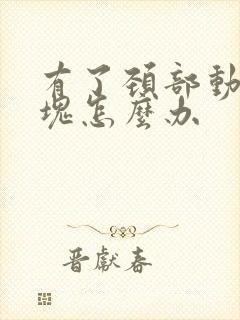 有了頚部動
塊怎麼办
晋獻春